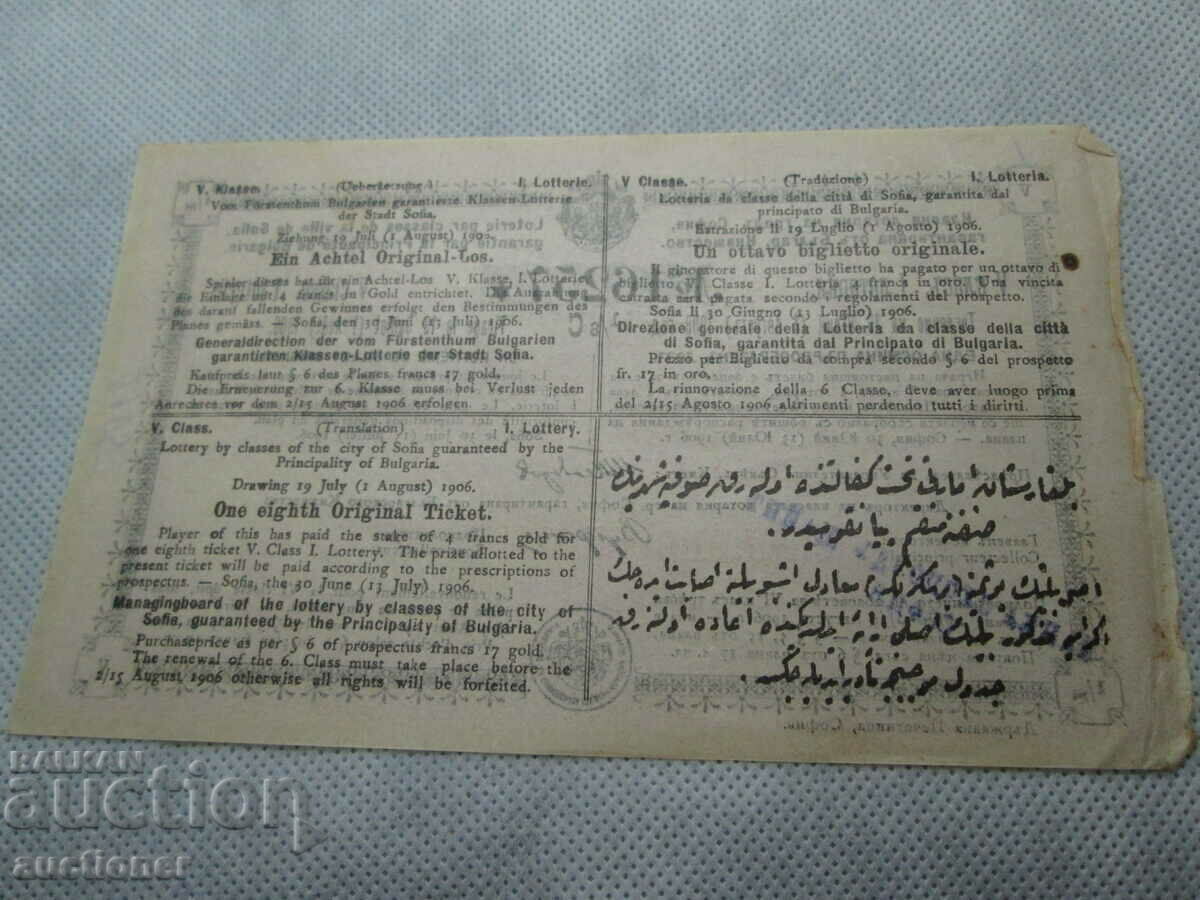 V. Klasse. (Uebersetzung) I. Lotterie.
Vom Fürstenthum Bulgarien garantierte Klassen-Lotterie
der Stadt Sofia.
Ziehung 19 Juli (1 August) 1906.
Ein Achtel Original-Los.
Spieler dieses hat für ein Achtel-Los V. Klasse I. Lotterie
die Einlage mit 4 francs in Gold entrichtet. Die
des darauf fallenden Gewinnes erfolgt den Bestimmungen des
Planes gemäss. — Sofia, den 30 Juni (13 Juli) 1906.
Generaldirection der vom Fürstenthum Bulgarien
garantirten Klassen-Lotterie der Stadt Sofia.
Kaufpreis laut § 6 des Planes francs 17 gold.
Die Erneuerung zur 6. Klasse muss bei Verlust jeden
Anrechtes vor dem 2/15 August 1906 erfolgen.
V Classe. (Traduzione) I. Lotteria.
Lotteria da classe della città di Sofia, garantita dal
principato di Bulgaria.
Estrazione Il 19 Luglio (1 Agosto) 1906.
Un ottavo biglietto originale.
Il ginocatore di questo biglietto ha pagato per un ottavo di
Classe I. Lotteria 4 francs in oro. Una vincita
estratta sarà pagata secondo i regolamenti del prospetto.
Sofia Il 30 Giugno (13 Luglio) 1906.
Direzione generale della Lotteria da classe della città
di Sofia, garantita dal Principato di Bulgaria.
Prezzo per Biglietto da compra secondo § 6 del prospetto
fr. 17 in oro.
La rinnovazione della 6 Classe, deve aver luogo prima
del 2/15 Agosto 1906 altrimenti perdendo tutti i diritti.
V. Class. (Translation) I. Lottery.
Lottery by classes of the city of Sofia guaranteed by the
Principality of Bulgaria.
Drawing 19 July (1 August) 1906.
One eighth Original Ticket.
Player of this has paid the stake of 4 francs gold for
one eighth ticket V. Class I. Lottery. The prize allotted to the
present ticket will be paid according to the prescriptions of
prospectus. — Sofia, the 30 June (13 July) 1906.
Managingboard of the lottery by classes of the city of
Sofia, guaranteed by the Principality of Bulgaria.
Purchaseprice as per § 6 of prospectus francs 17 gold.
The renewal of the 6. Class must take place before the
2/15 August 1906 otherwise all rights will be forfeited.
بلغارستان امارتی تحت کفالتنده اوله رق صوفیه شهرینك
صنفه منقسم پیانقوسیدر.
معادل اشبو بیلته اصابت ایده جك
مذکور بیلتك اصلی اعاده اولنه رق
جدول موجبنجه تأدیه ایدیله جکدر.
BALKAN
auction
auctioner